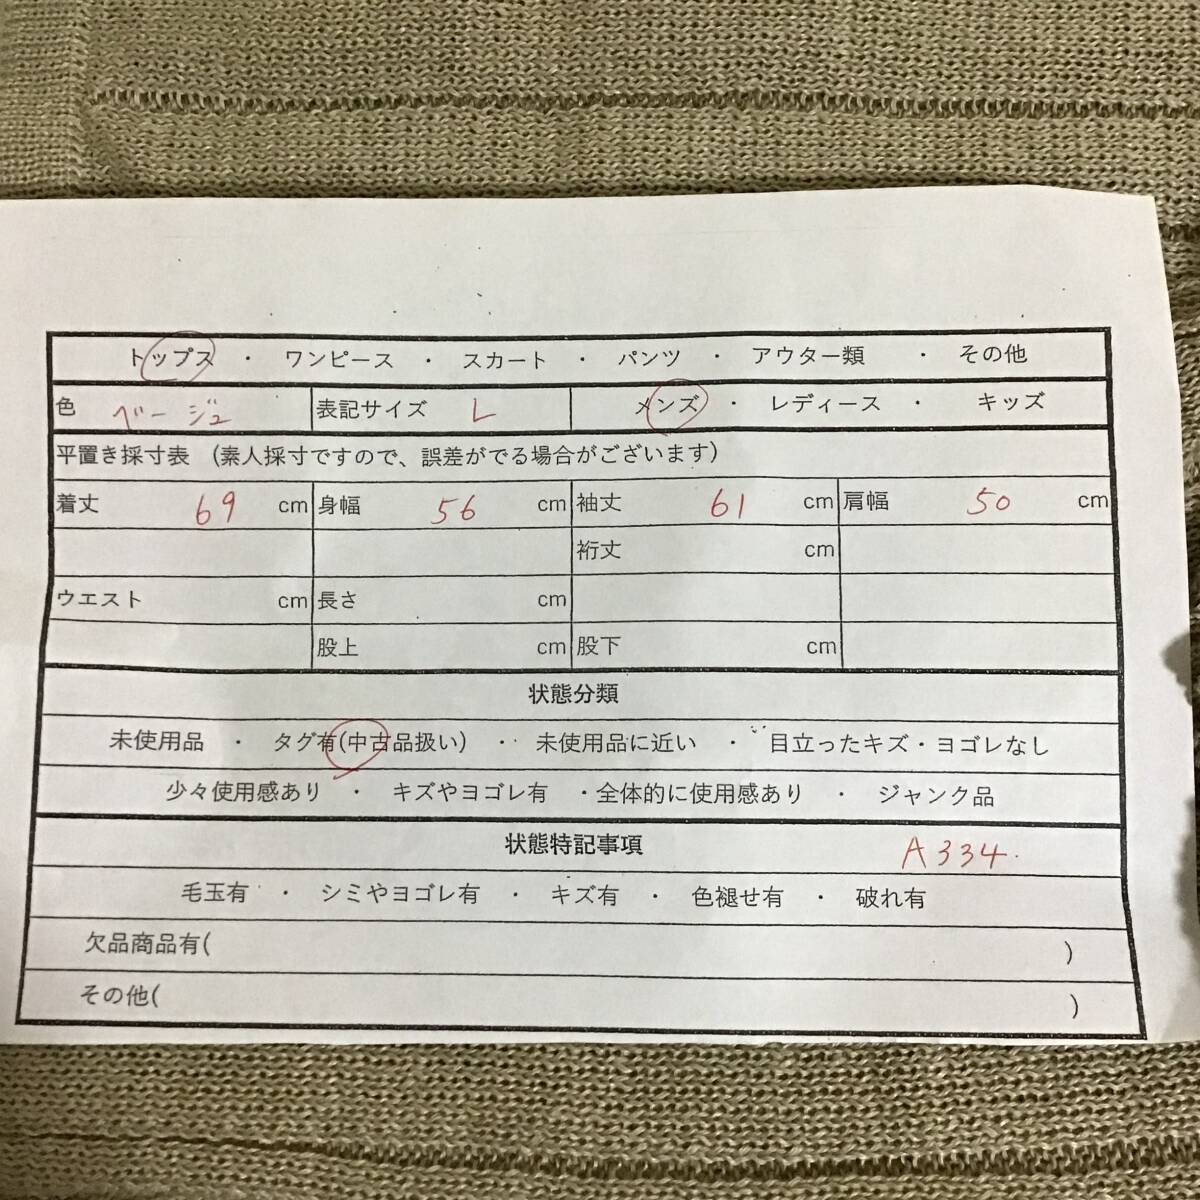 トップス ・ ワンピース ・ スカート ・ パンツ ・ アウター類 ・ その他
色 ベージュ 表記サイズ L メンズ ・ レディース ・ キッズ
平置き採寸表 (素人採寸ですので、誤差がでる場合がございます)
着丈 69 cm 身幅 56 cm 袖丈 61 cm 肩幅 50 cm
裄丈 cm
ウエスト cm 長さ cm
股上 cm 股下 cm
状態分類
未使用品 ・ タグ有(中古品扱い) ・ 未使用品に近い ・ 目立ったキズ・ヨゴレなし
少々使用感あり ・ キズやヨゴレ有 ・全体的に使用感あり ・ ジャンク品
状態特記事項 A334.
毛玉有 ・ シミやヨゴレ有 ・ キズ有 ・ 色褪せ有 ・ 破れ有
欠品商品有( )
その他( )